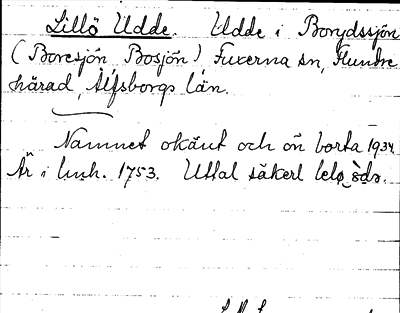 Lillö Udde. Udde i Borydssjön
(Boresjön, Bosjön) Fuxerna sn, Flundre
härad, Älfsborgs län.
Namnet okänt och ön borta 1934
Är i luh. 1753. Uttal säkerl